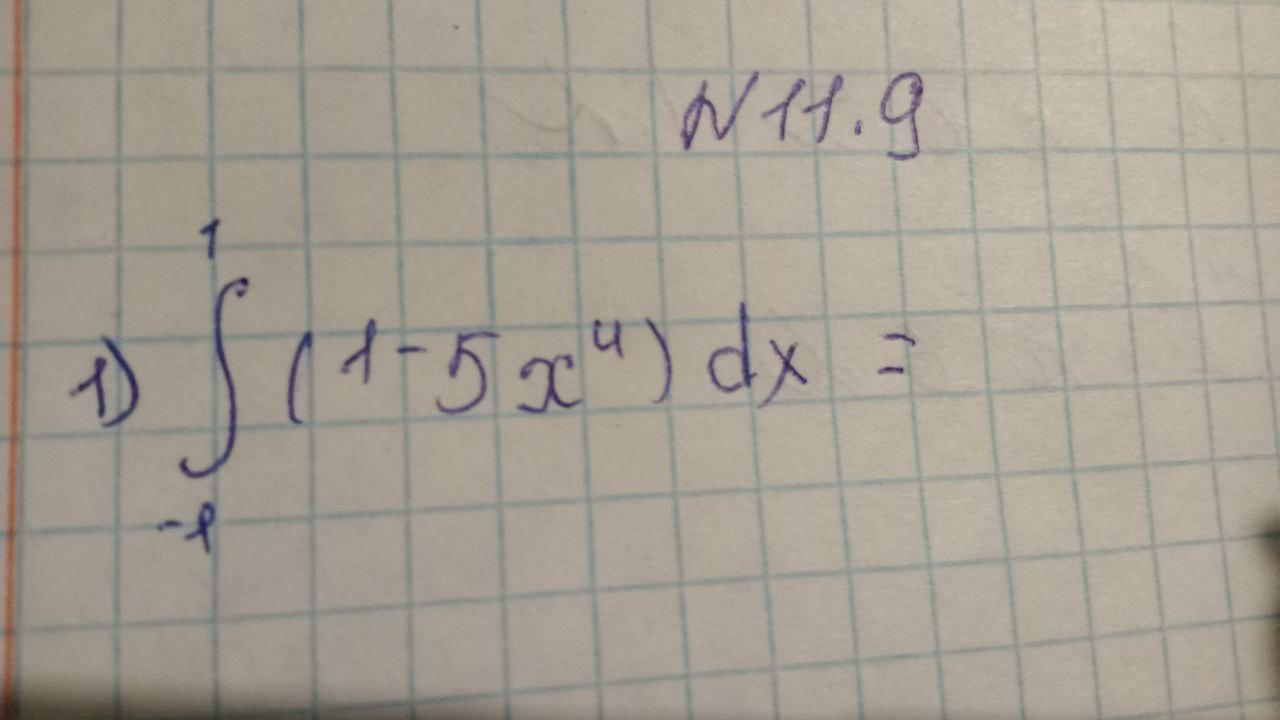 N 11.9
1) ∫₋₁¹ (1-5x⁴) dx =